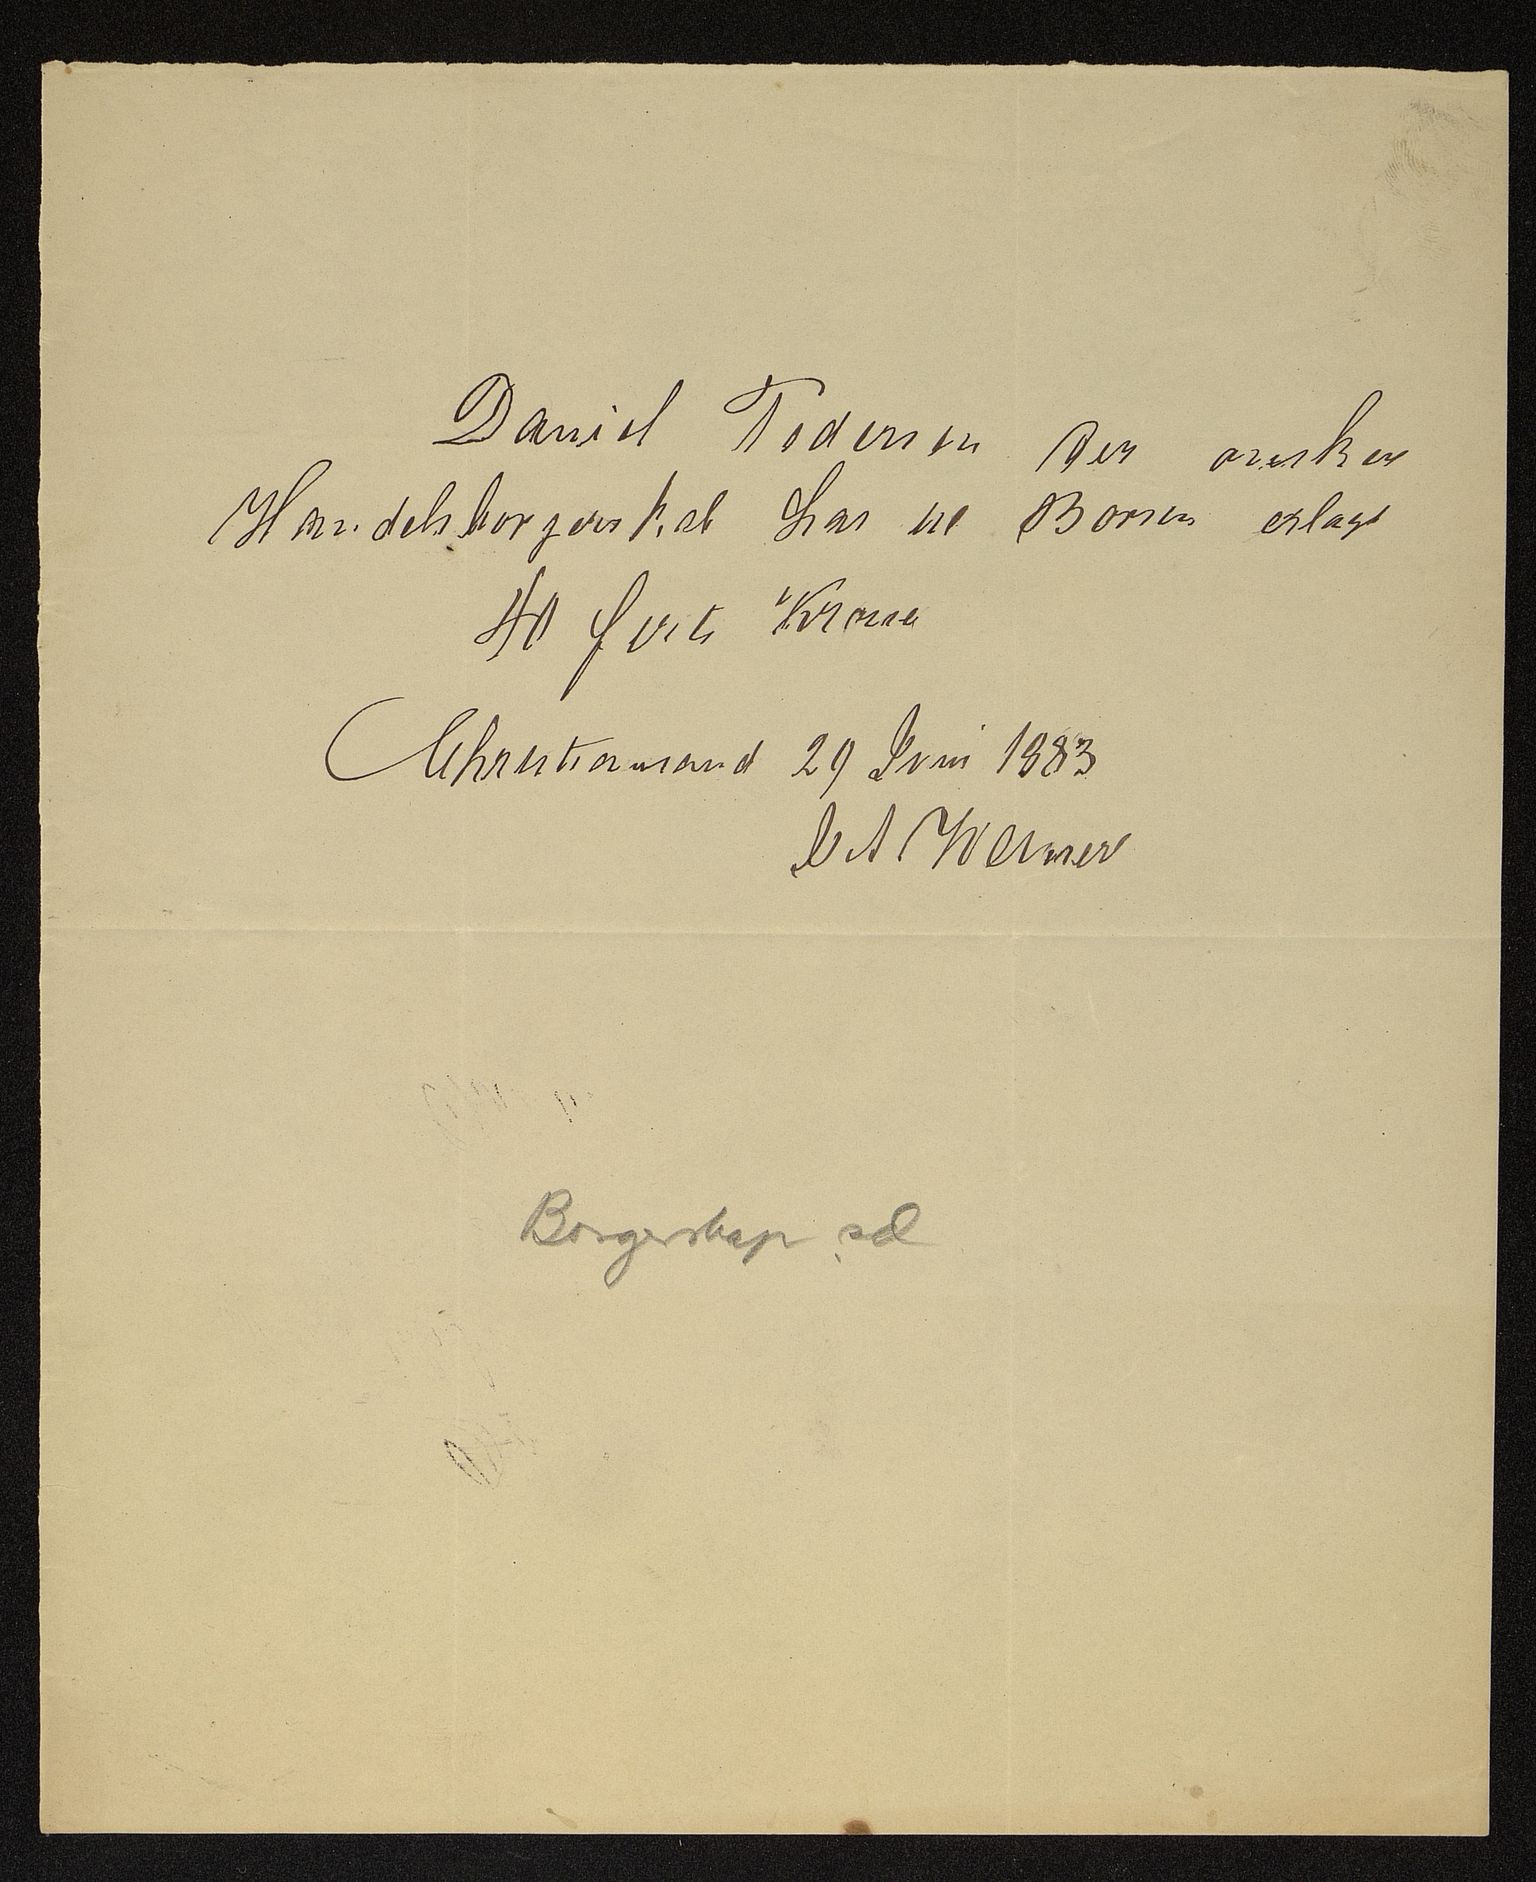 Daniel Tedersen der ønsker
Handelsborgerskab har til Børsen erlagt
40 førti Kroner
Christianssand 29 Juni 1883
C A Wermer
Borgerskap